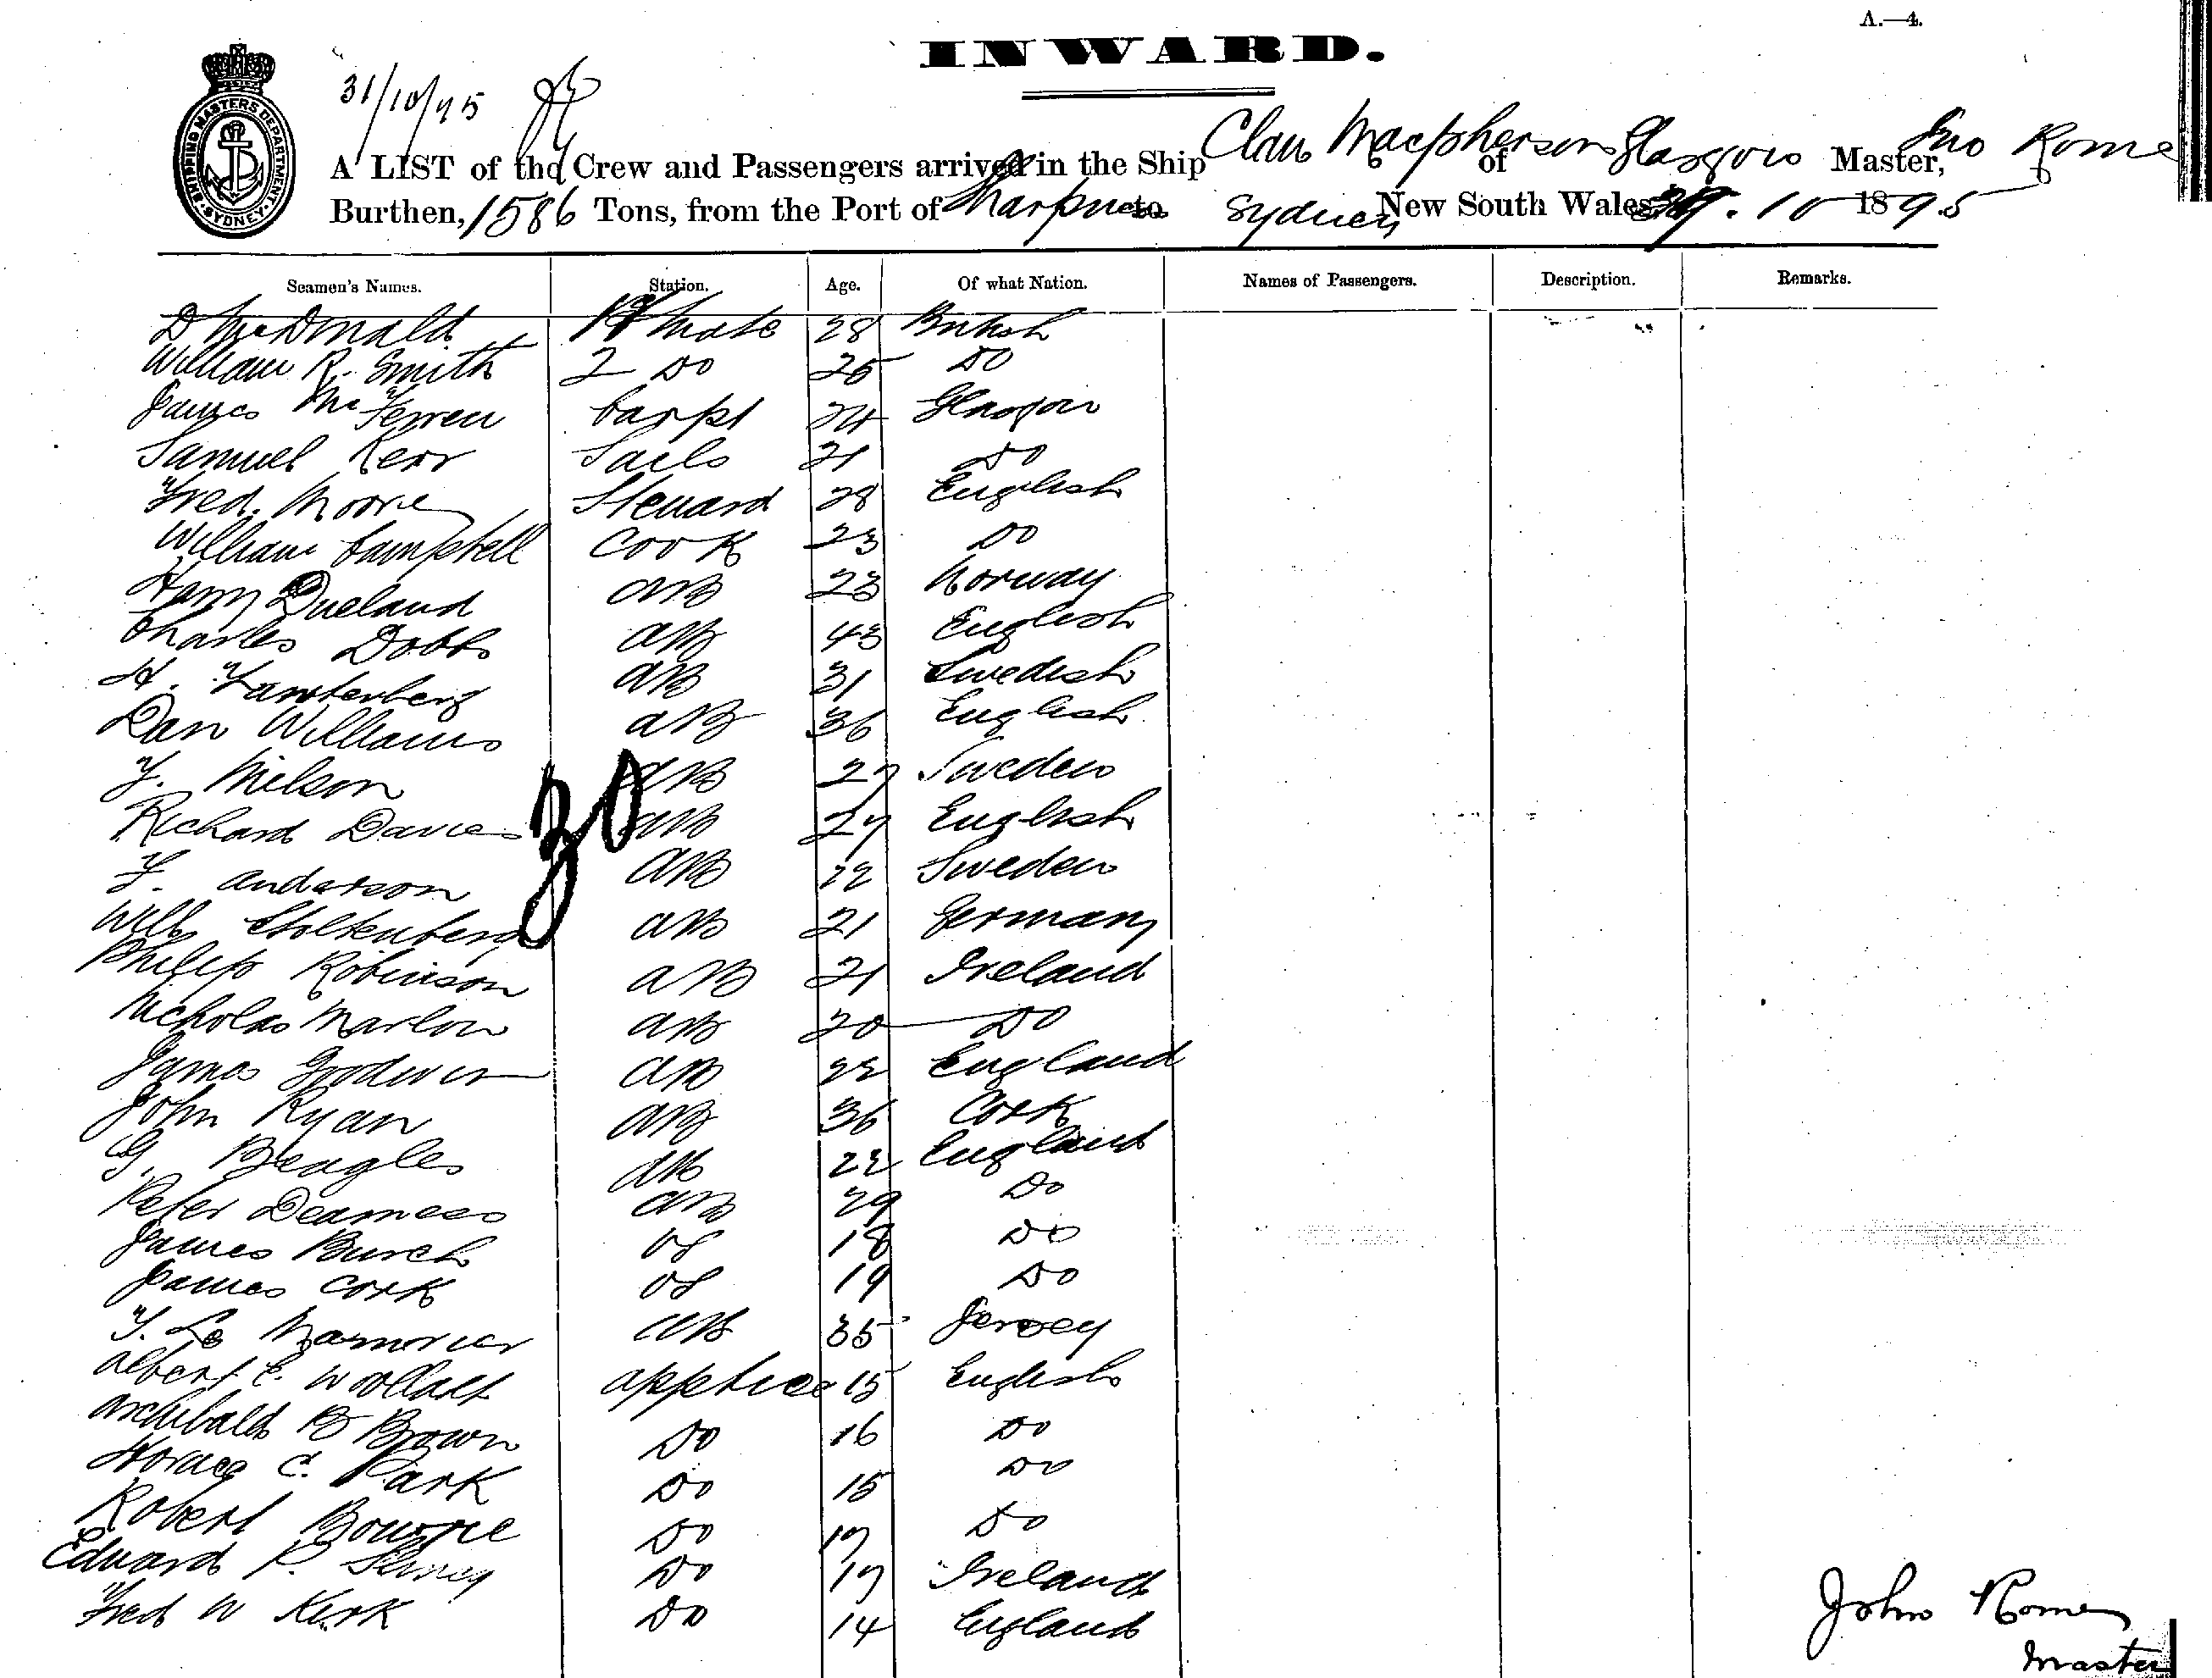 A.—4.
INWARD.
31/10/95
SHIPPING MASTERS DEPARTMENT. SYDNEY.
A LIST of the Crew and Passengers arrived in the Ship Clan Macpherson of Glasgow Master, Jno Rome
Burthen, 1586 Tons, from the Port of to Sydney New South Wales 29. 10 1895
Seamen's Names. Station. Age. Of what Nation. Names of Passengers. Description. Remarks.
D McDonald 1st Mate 28 British
William R. Smith 2 Do 25 Do
James Mc Ferren Carpt 24 Glasgow
Samuel Kerr Sails 21 Do
Fred. Moore Steuard 28 English
William Campbell Cook 23 Do
Harry Dueland AB 23 Norway
Charles Dobbs AB 43 English
H. AB 31 Swedish
Dan Williams AB 36 English
AB 27 Sweden
Richard Davies AB 27 English
F. Anderson AB 22 Sweden
Will Stoltenberg AB 21 Germany
Philip Robinson AB 21 Ireland
Nicholas Marlow AB 20 Do
James Goodwin AB 22 England
John Ryan AB 36 Cork
G. Beagles AB 22 England
Peter Dearness AB 29 Do
James Burch OS 18 Do
James Cork OS 19 Do
Le AB 35 Jersey
Albert E. Woollatt apptice 15 English
Archibald B Brown Do 16 Do
Horace C. Park Do 15 Do
Robert Bourne Do 17 Do
Edward P. Do 17 Ireland
Fred W Kirk Do 14 England
30
John Rome
Master